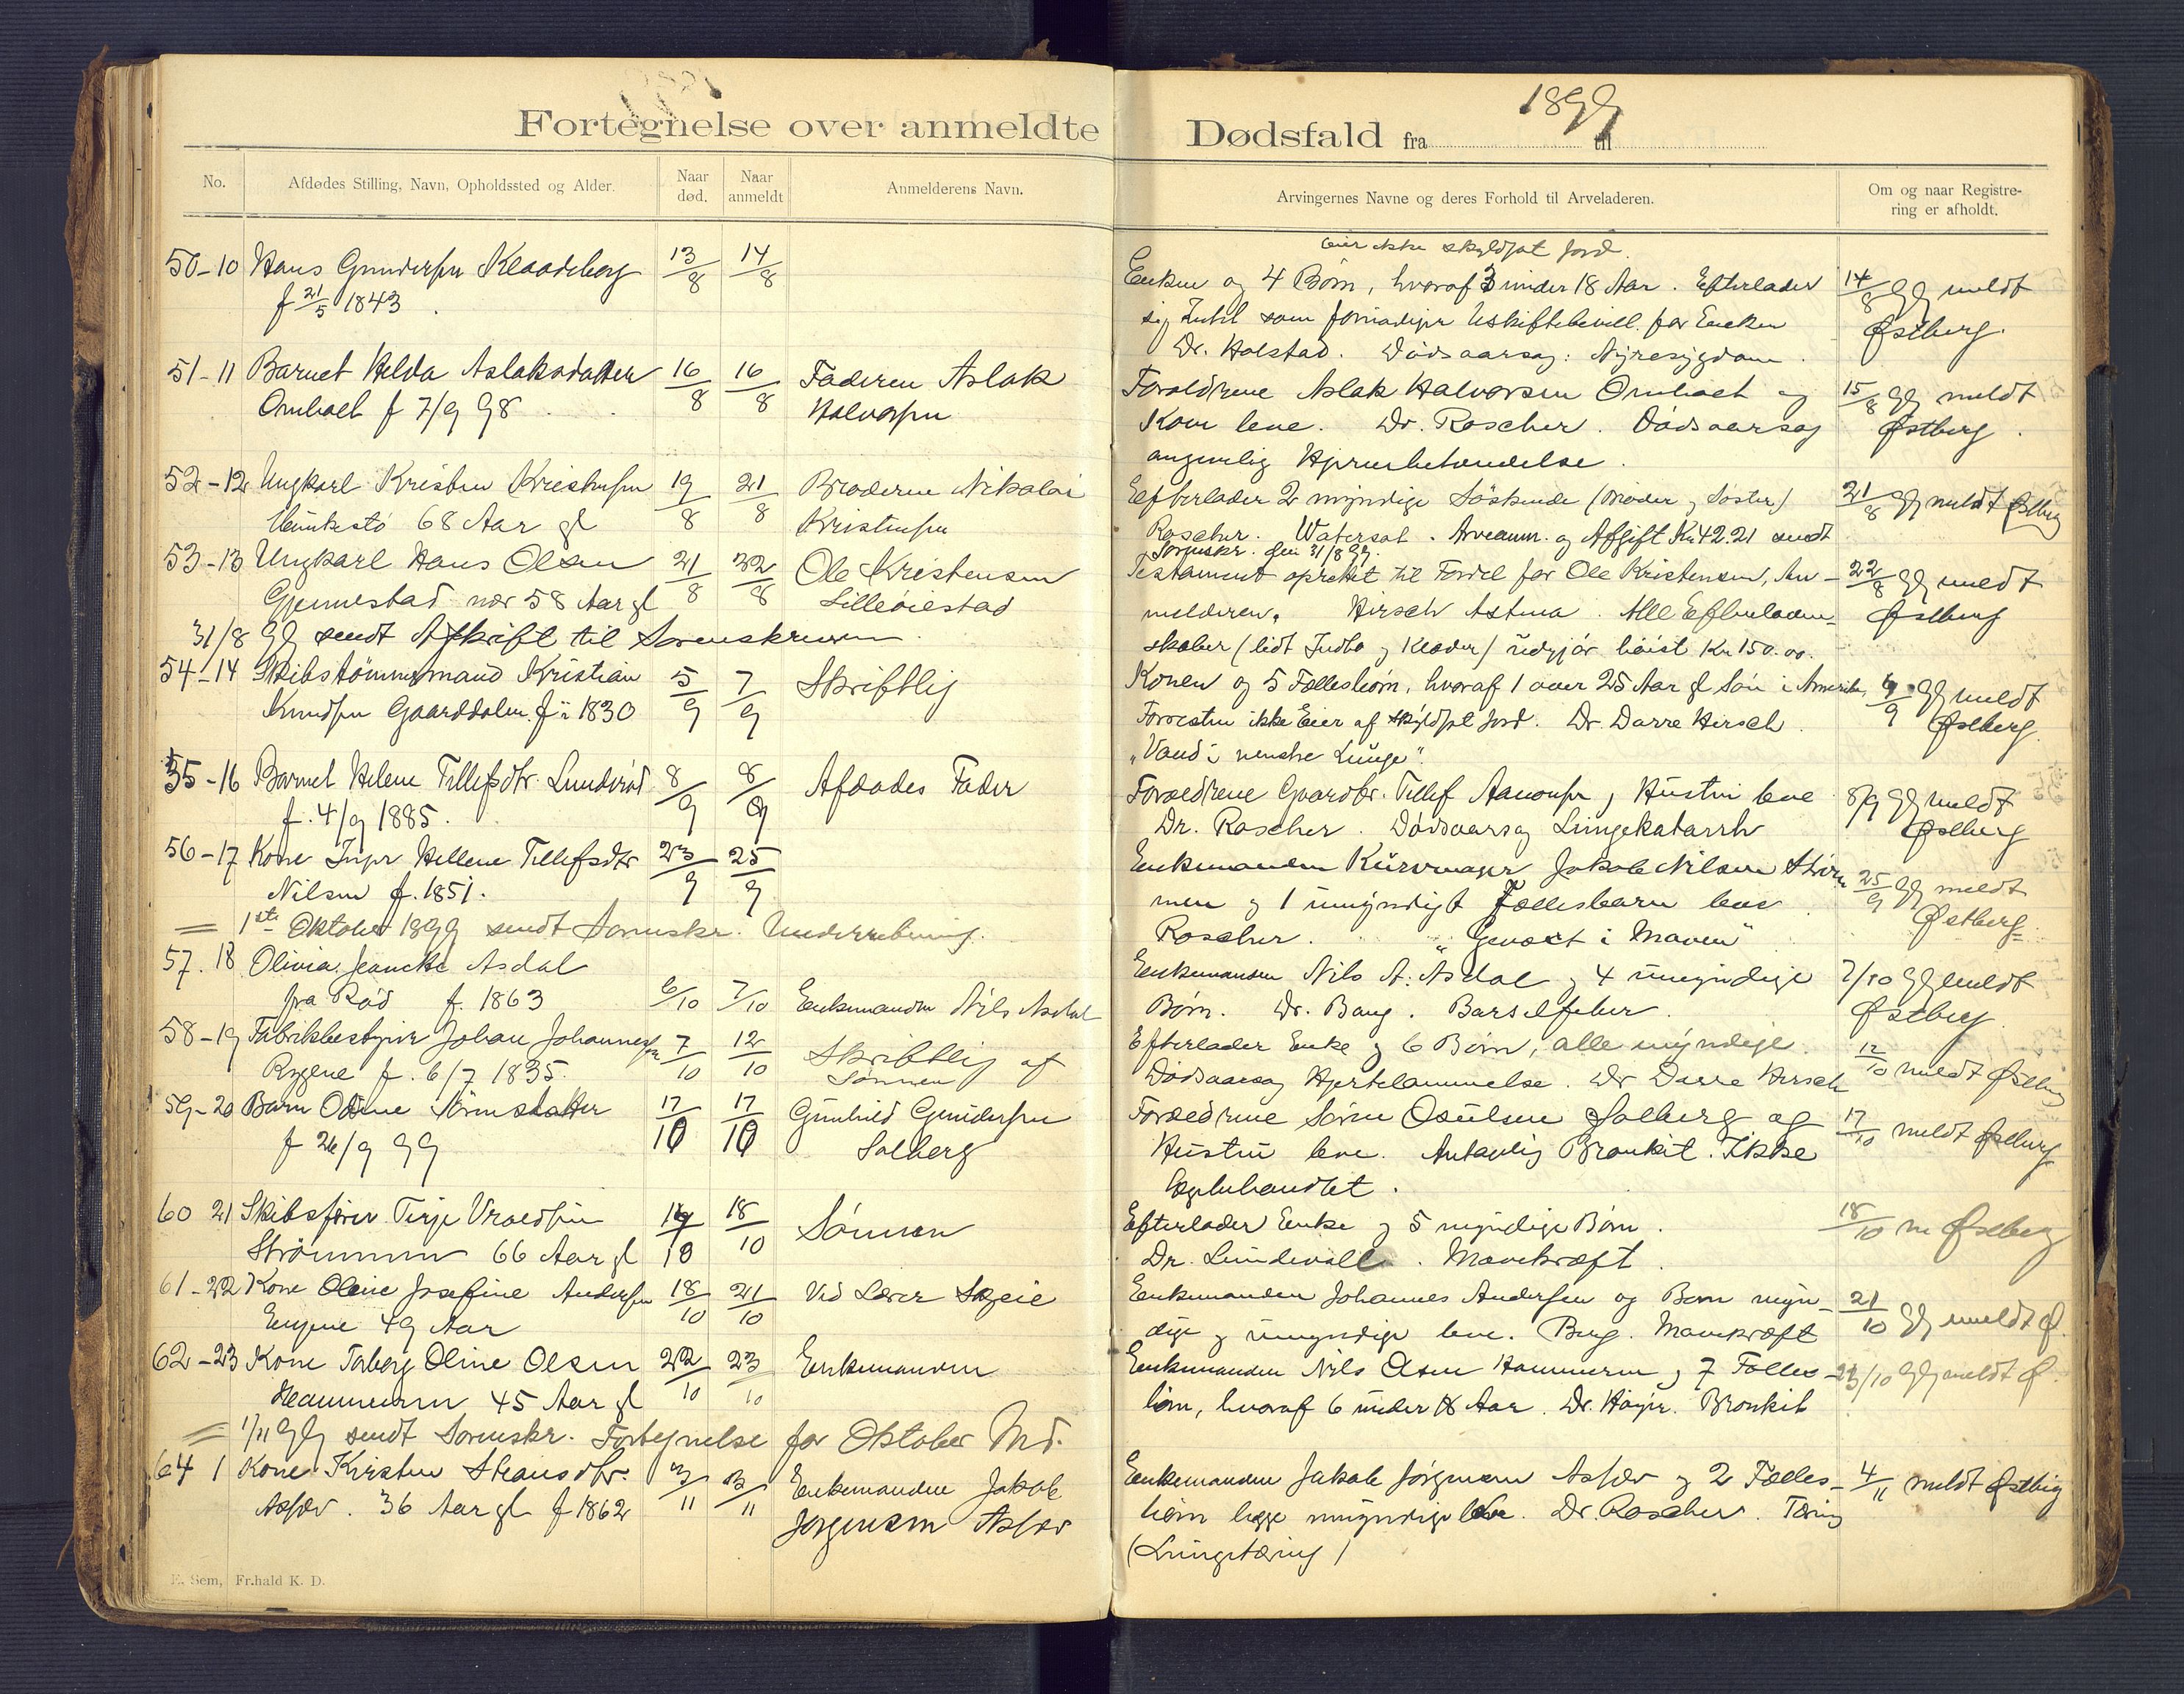 Fortegnelse over anmeldte Dødsfald fra 1899 til
No.
Afdødes Stilling, Navn, Opholdssted og Alder.
Naar død.
Naar anmeldt
Anmelderens Navn.
Arvingernes Navne og deres Forhold til Arveladeren.
Om og naar Registre-
ring er afholdt.
50-10 Hans Gundersen Klaadeborg 13/8 14/8
f 21/5 1843
eier ikke skyldsat Jord.
Enken og 4 Børn, hvoraf 3 under 18 Aar. Efterlader
sig Intet som Uskiftebevill. for Enken
Dr. Holstad. Dødsaarsag: Nyresygdom.
14/8 99 meldt
Østberg.
51-11 Barnet Helda Aslaksdatter 16/8 16/8 Faderen Aslak
Ombolt f 7/9 98 Halvorsen
Forældrene Aslak Halvorsen Ombolt og
Kone leve. Dr. Roscher. Dødsaarsag
angivelig Hjernebetændelse.
15/8 99 meldt
Østberg.
52-12 Ungkarl Kristen Kristensen 19/8 21/8 Broderen Nikolai
68 Aar gl Kristensen
Efterlader 2 myndige Søskende (Broder og Søster)
Roscher. Watersot. Arveanm. og Afgift Kr 42.21 sendt
Sorenskr. den 31/8 99.
21/8 99 meldt Østberg
53-13 Ungkarl Hans Olsen 21/8 22/8 Ole Kristensen
Gjennestad nær 58 Aar gl Lilleøiestad
Testament oprettet til Fordel for Ole Kristensen, An-
melderen. Hirsch Astma. Alle Efterladen-
skaber (lidt Indbo og Klæder) udgjør høist Kr 150.00.
22/8 99 meldt
Østberg
31/8 99 sendt Afskrift til Sorenskriveren.
54-14 Skibstømmermand Kristian 5/9 7/9 Skriftlig
Knudsen Gaarddalen f. i 1830
Konen og 5 Fællesbørn, hvoraf 1 over 25 Aar gl Søn i Amerika,
Forresten ikke Eier af skyldsat Jord. Dr. Darre Hirsch.
"Vand i venstre Lunge".
9/9 99 meldt
Østberg.
55-16 Barnet Helene Tellefsdtr. Lunderød 8/9 8/9 Afdødes Fader
f. 4/9 1885.
Forældrene Gaardbr. Tellef Aanonsen og Hustru leve
Dr. Roscher. Dødsaarsag Lungekatarrh
8/9 99 meldt
Østberg
56-17 Kone Inger Hellene Tellefsdtr 23/9 25/9
Nilsen f. 1851.
Enkemanden Kurvmager Jakob Nilsen Strøm
men og 1 umyndigt Fællesbarn leve.
Roscher. "Gevæxt i Maven"
25/9 99 meldt
Østberg
= 1ste Oktober 1899 sendt Sorenskr. Underretning.
57.18 Olivia Asdal
fra Rød f. 1863 6/10 7/10 Enkemanden Nils Asdal
Enkemanden Nils A. Asdal og 4 umyndige
Børn. Dr. Bang. Barselfeber.
7/10 99 meldt
Østberg
58-19 Fabrikbestyrer Johan Johannessen 7/10 12/10 Skriftlig af
Rygene f. 6/7 1835. Sønnen
Efterlader Enke og 6 Børn, alle myndige.
Dødsaarsag Hjertelammelse. Dr Darre Hirsch
12/10 meldt Østberg
59-20 Barn Odine Sørensdatter 17/10 17/10 Gunhild Gundersen
f 26/9 99 Solberg
Forældrene Søren Osulsen Solberg og
Hustru leve. Antagelig Bronkit. Ikke
Lægebehandlet.
17/10 meldt Østberg
60 21 Skibsfører Terje Vraaldsen 14/10 18/10 Sønnen
Strømmen 66 Aar gl
Efterlader Enke og 5 myndige Børn.
Dr. Lundevall. Mavekræft.
18/10 m Østberg
61-22 Kone Oline Josefine Andersen 18/10 21/10 Ved Lærer Løgeie
Engene 49 Aar
Enkemanden Johannes Andersen og Børn myn-
dige og umyndige leve. Bug. Mavekræft
21/10 99 meldt Ø.
62-23 Kone Torborg Oline Olsen 22/10 23/10 Enkemanden
Hammeren 45 Aar gl
Enkemanden Nils Olsen Hammeren og 7 Fælles-
børn, hvoraf 6 under 18 Aar. Dr. Høyer. Bronkit
23/10 99 meldt Ø.
= 1/11 99 sendt Sorenskr. Fortegnelse for Oktober Md.
64 1 Kone Kirsten 3/11 3/11 Enkemanden Jakob
Asfær. 36 Aar gl f 1862 Jørgensen Asfær
Enkemanden Jakob Jørgensen Asfær og 2 Fælles-
børn begge umyndige leve. Dr. Roscher. Tæring
(Lungetæring)
4/11 meldt Østberg
E. Sem, Fr.hald K. D.